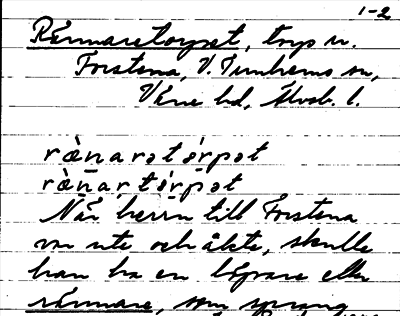 1-2
Rännaretorpet, torp u.
Forstena, V. Tunhems sn,
Väne hd, Älvsb. l.
ràṉarətórpət
ràṉar̥tórpət
När herrn till Forstena
var ute och åkte, skulle
han ha en löpare eller
rännare, som sprang